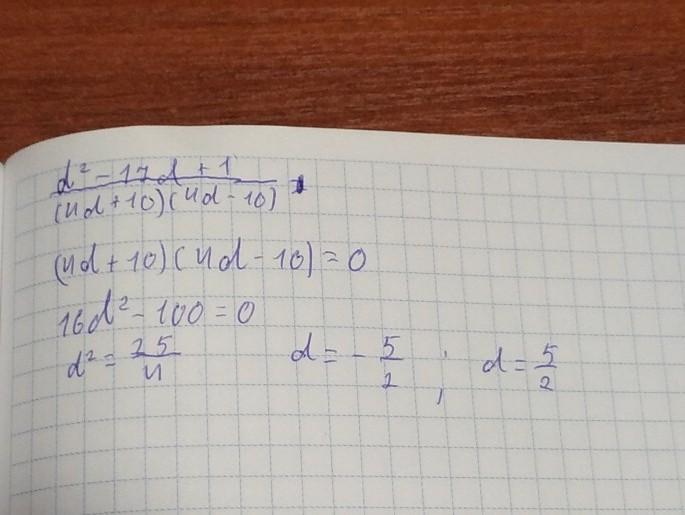 d² - 17d + 1
(4d+10)(4d-10)
(4d+10)(4d-10)=0
16d² - 100 = 0
d² = 25/4 d = - 5/2 ; d = 5/2